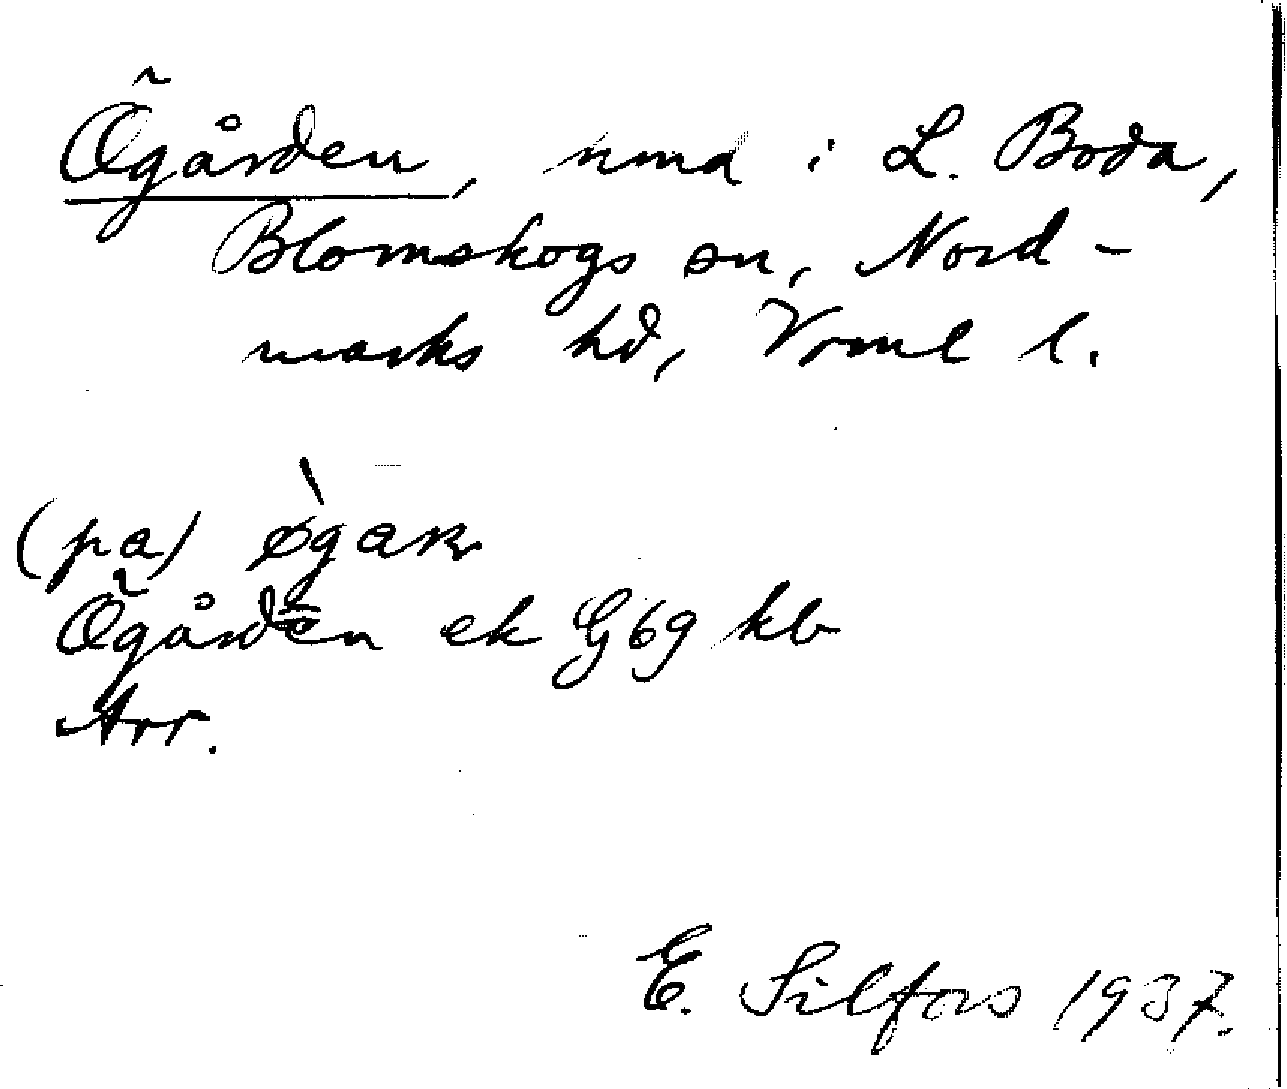 Ögården, nmd i L. Boda,
Blomskogs sn, Nord-
marks hd, Vrml l.
(pa) øgaɳ
Ögården ek G69 kb
Arr.
E. Silfors 1937.